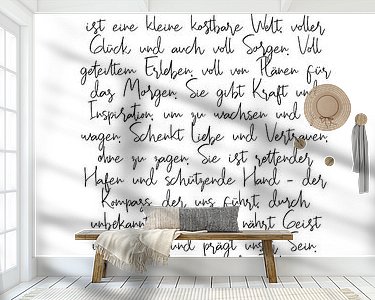 ist eine kleine kostbare Welt, voller
Glück und auch voll Sorgen. Voll
geteiltem Erleben, voll von Plänen für
das Morgen. Sie gibt Kraft und
Inspiration, um zu wachsen und
wagen. Schenkt Liebe und Vertrauen,
ohne zu zagen. Sie ist rettender
Hafen und schützende Hand - der
Kompass, der uns führt, durch
nährt Geist
und prägt unser Sein.